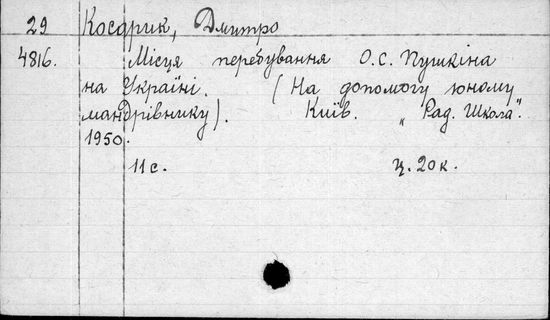 29 Косарик, Дмитро
4816. Місця перебування О.С. Пушкіна
на Україні. (На допомогу юному
мандрівнику). Київ. „Рад. Школа".
1950.
11 с. Ц. 20 к.